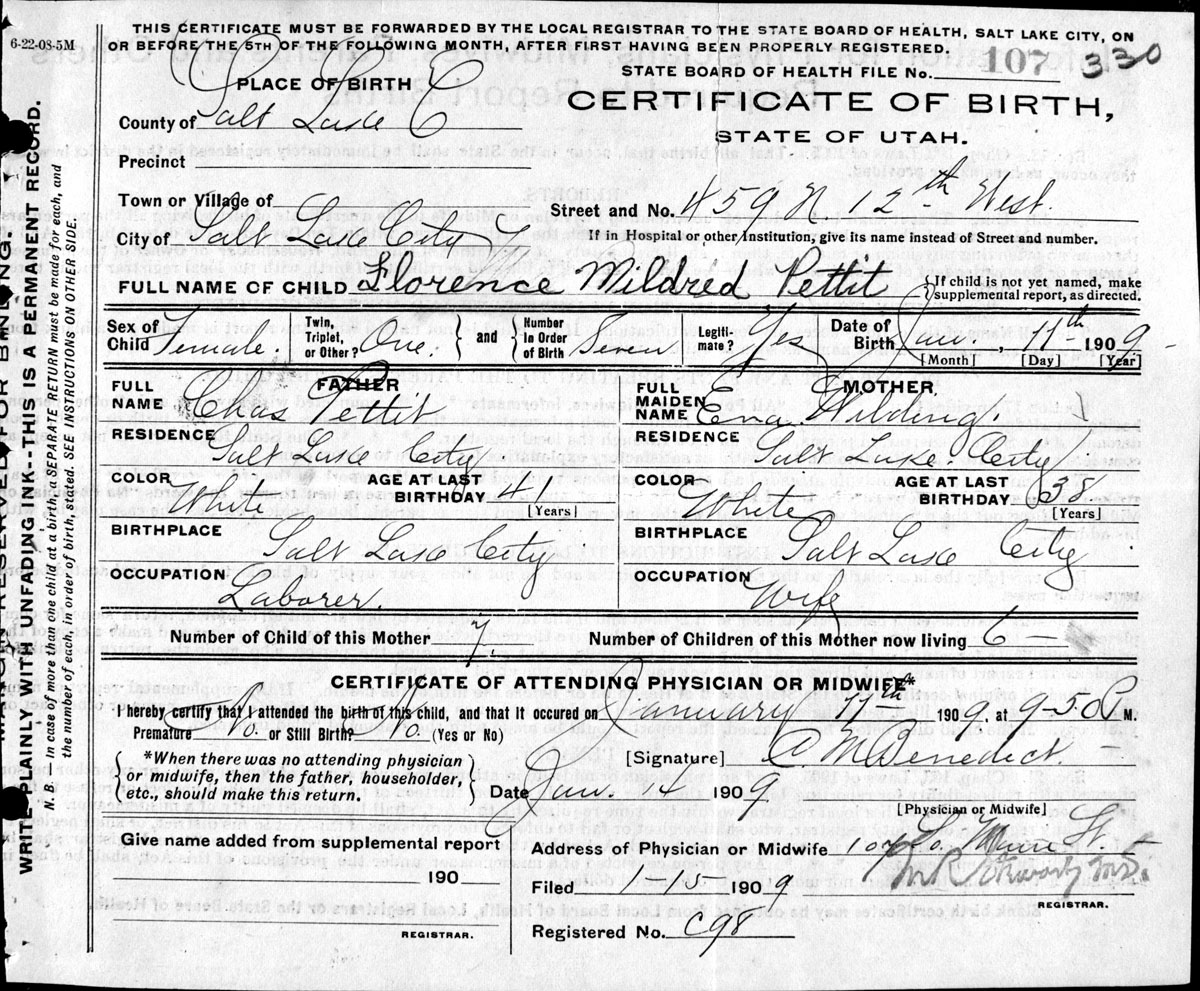 THIS CERTIFICATE MUST BE FORWARDED BY THE LOCAL REGISTRAR TO THE STATE BOARD OF HEALTH, SALT LAKE CITY, ON
OR BEFORE THE 5TH OF THE FOLLOWING MONTH, AFTER FIRST HAVING BEEN PROPERLY REGISTERED.
6-22-08-5M
STATE BOARD OF HEALTH FILE No. 107 330
PLACE OF BIRTH
CERTIFICATE OF BIRTH,
STATE OF UTAH.
County of Salt Lake C
Precinct
Town or Village of
Street and No. 459 N 12th West.
City of Salt Lake City
If in Hospital or other Institution, give its name instead of Street and number.
FULL NAME OF CHILD Florence Mildred Pettit
If child is not yet named, make supplemental report, as directed.
Sex of Child Female. Twin, Triplet, or Other? One. and Number in Order of Birth Seven Legitimate? Yes Date of Birth Jan. 11th 1909
[Month] [Day] [Year]
FATHER
FULL NAME Chas Pettit
RESIDENCE Salt Lake City
COLOR White AGE AT LAST BIRTHDAY 41
[Years]
BIRTHPLACE Salt Lake City
OCCUPATION Laborer.
MOTHER
FULL MAIDEN NAME Ena Wilding.
RESIDENCE Salt Lake City
COLOR White AGE AT LAST BIRTHDAY 38
[Years]
BIRTHPLACE Salt Lake City
OCCUPATION Wife
Number of Child of this Mother 7. Number of Children of this Mother now living 6
CERTIFICATE OF ATTENDING PHYSICIAN OR MIDWIFE*
I hereby certify that I attended the birth of this child, and that it occured on January 11th 1909, at 9-50 P M.
Premature No. or Still Birth? No. (Yes or No)
*When there was no attending physician
or midwife, then the father, householder,
etc., should make this return.
[Signature] C. M. Benedict.
Date Jan. 14 1909
[Physician or Midwife]
Give name added from supplemental report
190
REGISTRAR.
Address of Physician or Midwife So. Main St.
Filed 1-15-1909
M.D.
REGISTRAR.
Registered No. C98
MARGIN RESERVED FOR BINDING.
WRITE PLAINLY WITH UNFADING INK--THIS IS A PERMANENT RECORD.
N. B.—In case of more than one child at a birth a SEPARATE RETURN must be made for each, and
the number of each, in order of birth, stated. SEE INSTRUCTIONS ON OTHER SIDE.